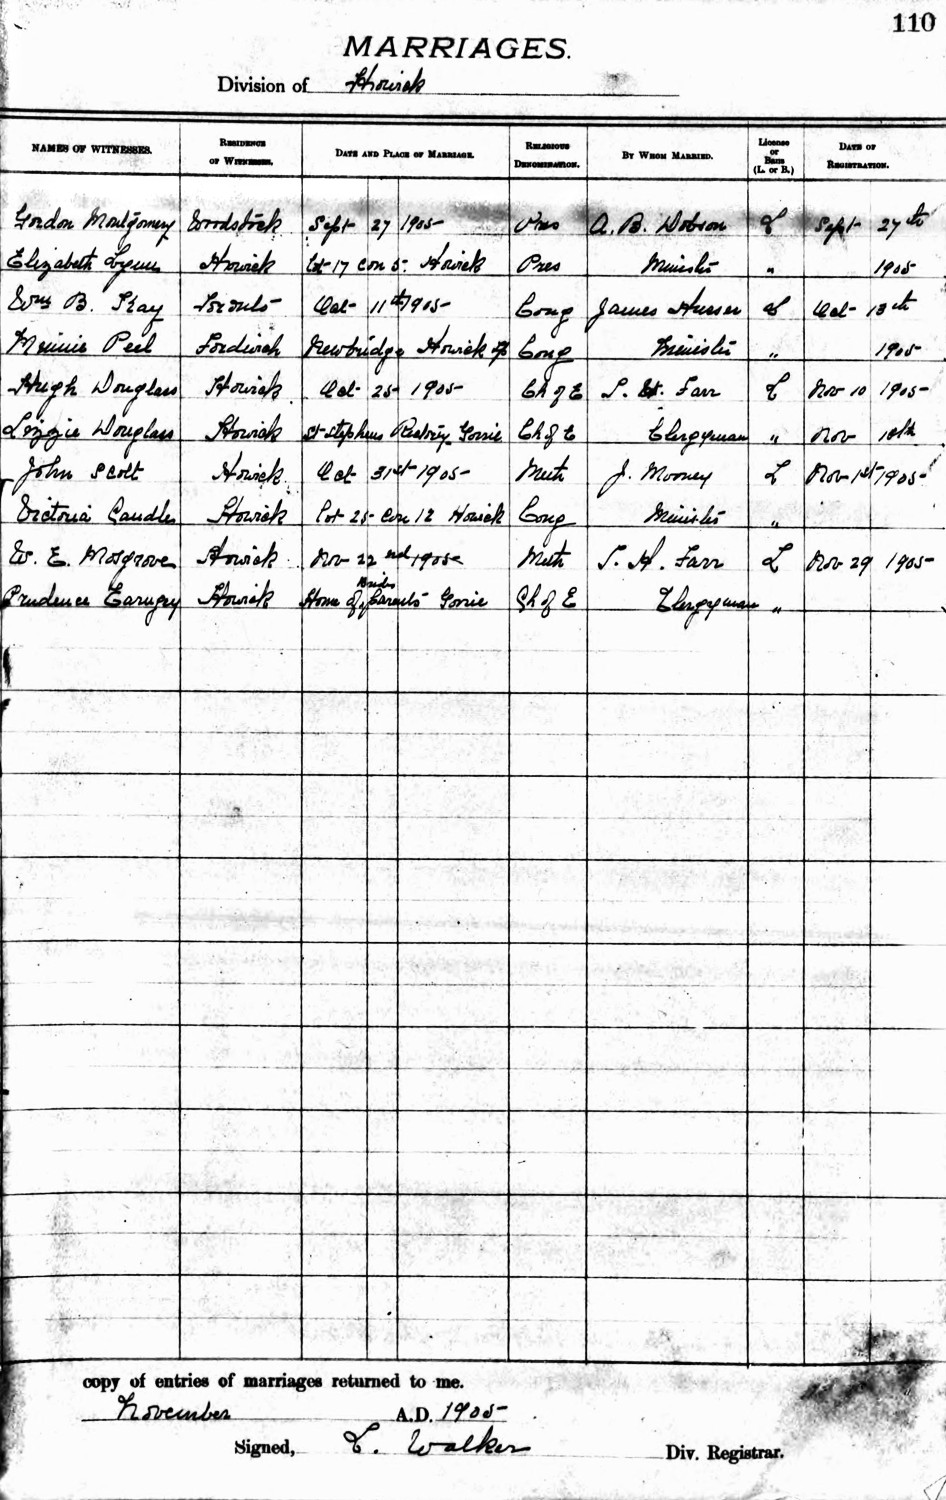 110
MARRIAGES.
Division of Howick
NAMES OF WITNESSES. RESIDENCE OF WITNESSES. DATE AND PLACE OF MARRIAGE. RELIGIOUS DENOMINATION. BY WHOM MARRIED. License or Bans (L. or B.) DATE OF REGISTRATION.
Gordon Montgomery Woodstock Sept 27 1905 Pres A. B. Dobson L Sept 27th
Elizabeth Howick Lot 17 Con 5 Howick Pres Minister " 1905
Wm B. Kay Toronto Oct 11th 1905 Cong James L Oct 13th
Minnie Peel Fordwich Newbridge Howick Tp Cong Minister " 1905
Hugh Douglass Howick Oct 25 1905 Ch of E T. H. Farr L Nov 10 1905
Lizzie Douglass Howick St Stephens Rectory Gorrie Ch of E Clergyman " Nov 10th
John Scott Howick Oct 31st 1905 Meth J. Mooney L Nov 1st 1905
Victoria Howick Lot 25 Con 12 Howick Cong Minister "
W. E. Mosgrove Howick Nov 22nd 1905 Meth T. H. Farr L Nov 29 1905
Prudence Howick Home of Brides Parents Gorrie Ch of E Clergyman "
copy of entries of marriages returned to me.
November A.D. 1905
Signed, L. Walker Div. Registrar.